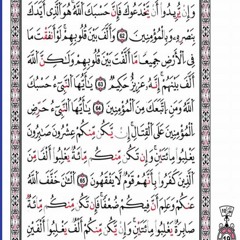 وَإِن يُرِيدُوٓا۟ أَن يَخْدَعُوكَ فَإِنَّ حَسْبَكَ ٱللَّهُ هُوَ ٱلَّذِىٓ أَيَّدَكَ
بِنَصْرِهِۦ وَبِٱلْمُؤْمِنِينَ ٦٢ وَأَلَّفَ بَيْنَ قُلُوبِهِمْ لَوْ أَنفَقْتَ مَا
فِى ٱلْأَرْضِ جَمِيعًا مَّآ أَلَّفْتَ بَيْنَ قُلُوبِهِمْ وَلَٰكِنَّ ٱللَّهَ
أَلَّفَ بَيْنَهُمْ إِنَّهُۥ عَزِيزٌ حَكِيمٌ ٦٣ يَٰٓأَيُّهَا ٱلنَّبِىُّ حَسْبُكَ
ٱللَّهُ وَمَنِ ٱتَّبَعَكَ مِنَ ٱلْمُؤْمِنِينَ ٦٤ يَٰٓأَيُّهَا ٱلنَّبِىُّ حَرِّضِ
ٱلْمُؤْمِنِينَ عَلَى ٱلْقِتَالِ إِن يَكُن مِّنكُمْ عِشْرُونَ صَٰبِرُونَ
يَغْلِبُوا۟ مِا۟ئَتَيْنِ وَإِن يَكُن مِّنكُم مِّا۟ئَةٌ يَغْلِبُوٓا۟ أَلْفًا مِّنَ
ٱلَّذِينَ كَفَرُوا۟ بِأَنَّهُمْ قَوْمٌ لَّا يَفْقَهُونَ ٦٥ ٱلْـَٰٔنَ خَفَّفَ ٱللَّهُ
عَنكُمْ وَعَلِمَ أَنَّ فِيكُمْ ضَعْفًا فَإِن يَكُن مِّنكُم مِّا۟ئَةٌ
صَابِرَةٌ يَغْلِبُوا۟ مِا۟ئَتَيْنِ وَإِن يَكُن مِّنكُمْ أَلْفٌ يَغْلِبُوٓا۟ أَلْفَيْنِ